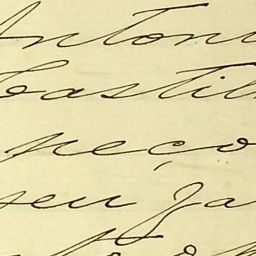 Antoni
Castil
peço
seu fa